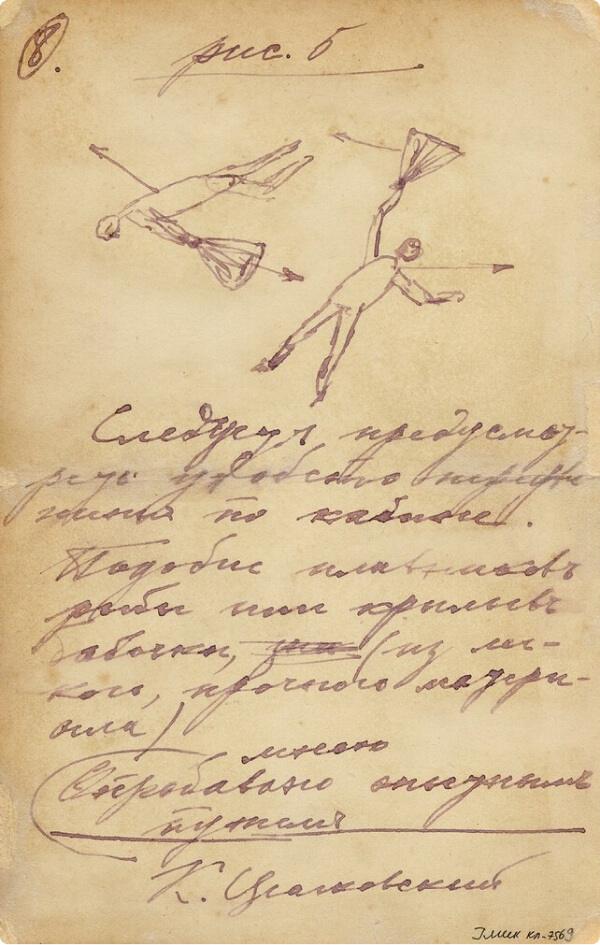 8.
рис. 6
Следуетъ предусмот-
реть удобство передви-
жения по кабине.
Подобие плавниковъ
рыбы или крыльевъ
бабочки, (из лег-
кого, прочного матери-
ала)
мною
Опробавано опытнымъ
путемъ
К. Циолковский
ГМИК КП-7569